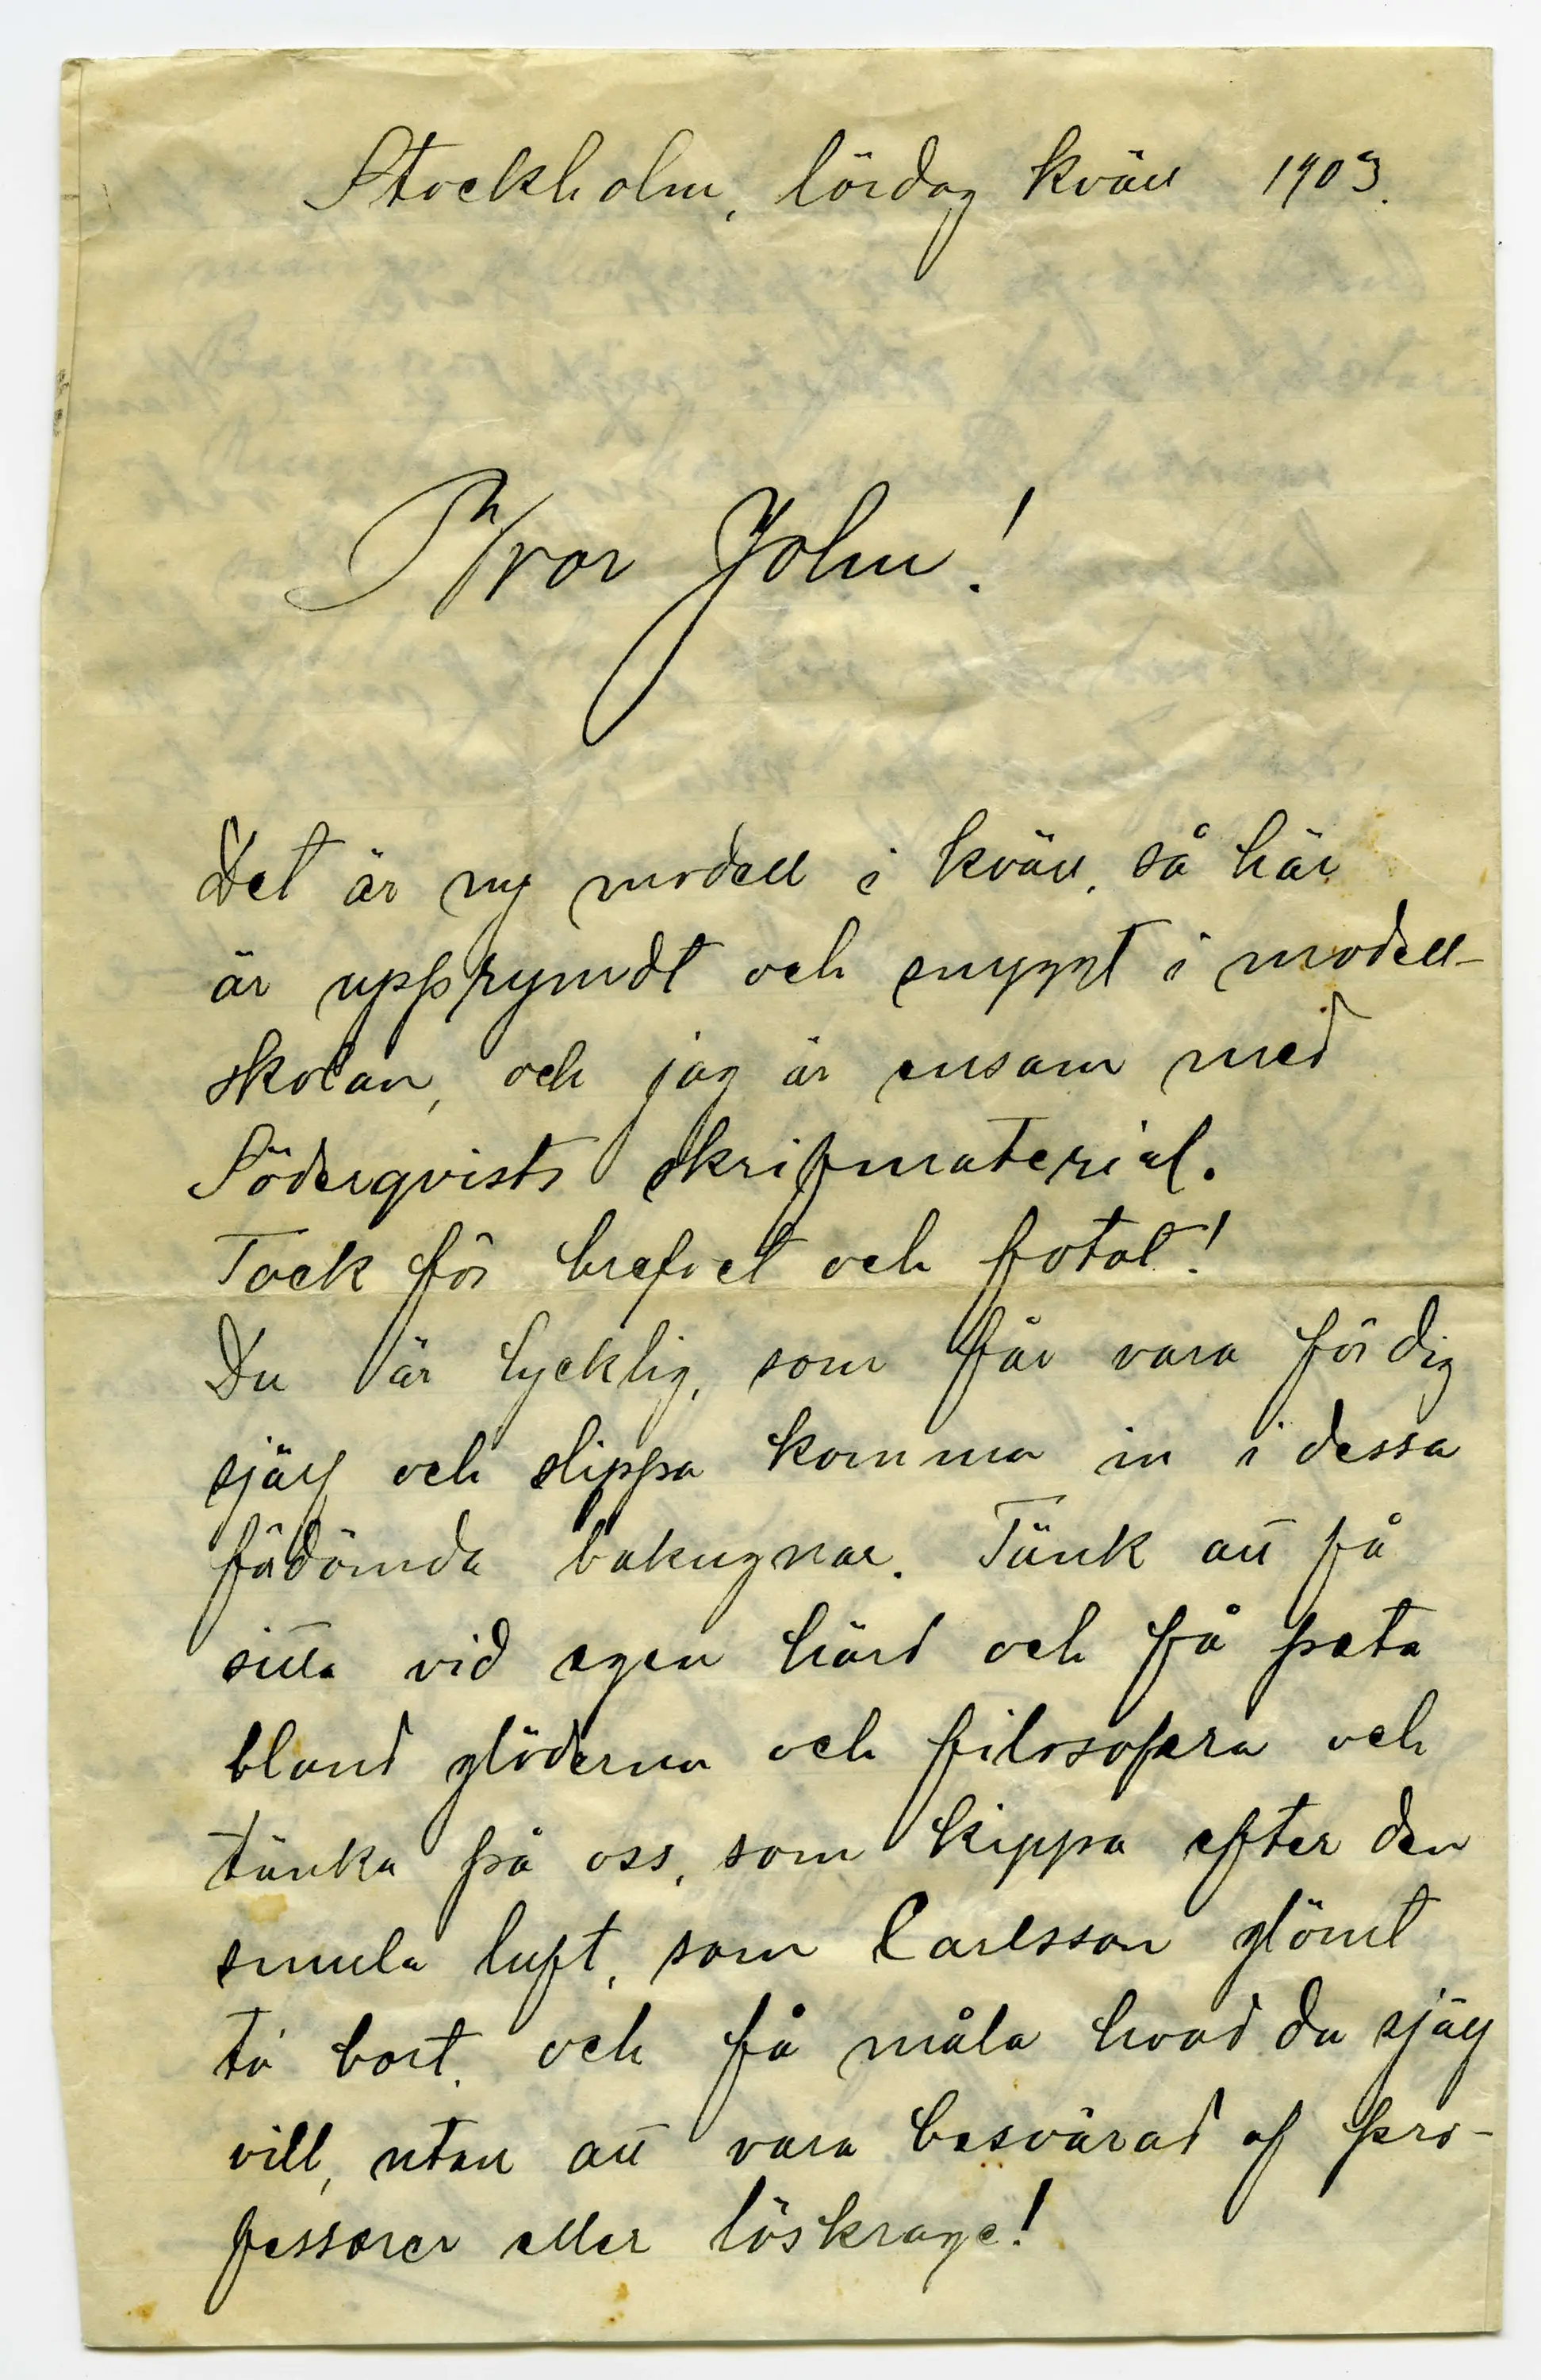 Stockholm, lördag kväll 1903.
Bror John!
Det är ny modell i kväll, så här
är upprymdt och snyggt i modell-
skolan, och jag är ensam med
Söderqvists skrifmaterial.
Tack för brefvet och fotot!
Du är lycklig, som får vara för dig
själf och slippa komma in i dessa
fördömda bakugnar. Tänk att få
sitta vid egen härd och få peta
bland glöderna och filosofera och
tänka på oss, som kippa efter den
smula luft, som Carlsson glömt
ta bort, och få måla hvad du själf
vill, utan att vara besvärad af pro-
fessorer eller löskrage!